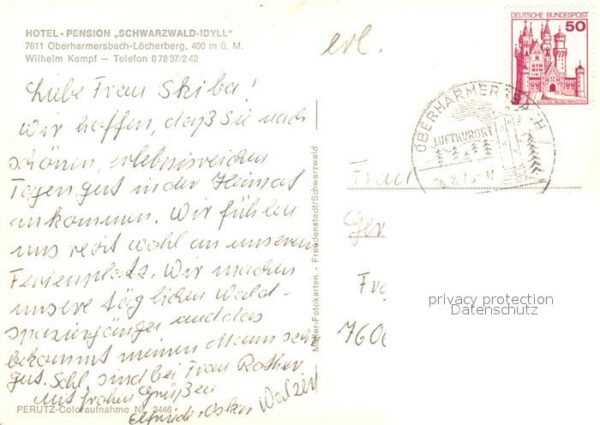 HOTEL-PENSION „SCHWARZWALD-IDYLL"
7611 Oberharmersbach-Löcherberg, 400 m ü. M.
Wilhelm Kempf — Telefon 0 78 37/2 42
Liebe Frau Skiba!
Wir hoffen, daß Sie nach
schönen, erlebnisreichen
Tagen gut in der Heimat
ankommen. Wir fühlen
uns recht wohl an unserem
Ferienplatz. Wir machen
unsere täglichen Wald-
spaziergänge und das
bekommt meinem Mann sehr
gut. Schl. sind bei Frau Rother
mit frohen Grüßen
Elfriede + Oskar Walzer
PERUTZ-Coloraufnahme Nr. 2446
Müller-Fotokarten · Freudenstadt/Schwarzwald
erl.
DEUTSCHE BUNDESPOST
50
OBERHARMERSBACH
LUFTKURORT
Frau
Ger
Fr
760
privacy protection
Datenschutz